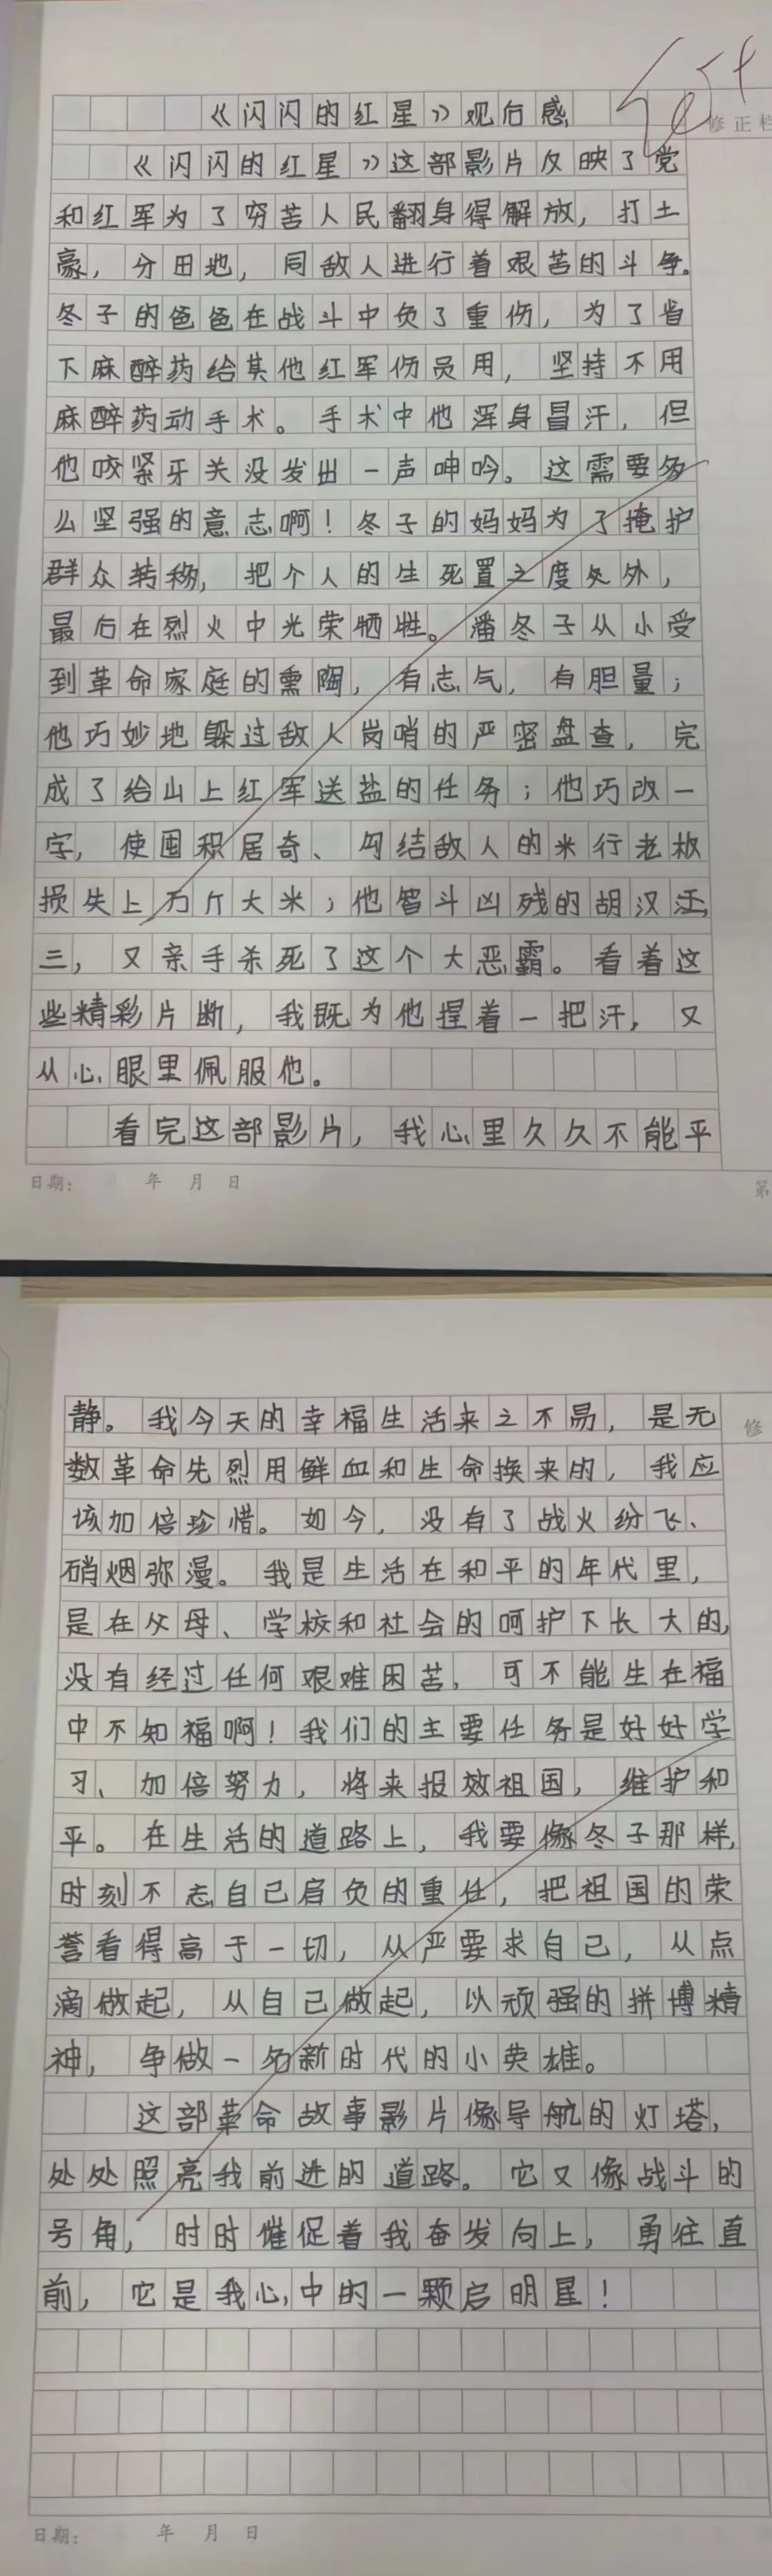 《闪闪的红星》观后感
修正栏
《闪闪的红星》这部影片反映了党
和红军为了穷苦人民翻身得解放，打土
豪，分田地，同敌人进行着艰苦的斗争。
冬子的爸爸在战斗中负了重伤，为了省
下麻醉药给其他红军伤员用，坚持不用
麻醉药动手术。手术中他浑身冒汗，但
他咬紧牙关没发出一声呻吟。这需要多
么坚强的意志啊！冬子的妈妈为了掩护
群众转移，把个人的生死置之度外，
最后在烈火中光荣牺牲。潘冬子从小受
到革命家庭的熏陶，有志气，有胆量；
他巧妙地躲过敌人岗哨的严密盘查，完
成了给山上红军送盐的任务；他巧改一
字，使囤积居奇、勾结敌人的米行老板
损失上万斤大米；他智斗凶残的胡汉
三，又亲手杀死了这个大恶霸。看着这
些精彩片断，我既为他捏着一把汗，又
从心眼里佩服他。
看完这部影片，我心里久久不能平
日期： 年 月 日
第
静。我今天的幸福生活来之不易，是无
修
数革命先烈用鲜血和生命换来的，我应
该加倍珍惜。如今，没有了战火纷飞、
硝烟弥漫。我是生活在和平的年代里，
是在父母、学校和社会的呵护下长大的，
没有经过任何艰难困苦，可不能生在福
中不知福啊！我们的主要任务是好好学
习、加倍努力，将来报效祖国，维护和
平。在生活的道路上，我要像冬子那样，
时刻不忘自己肩负的重任，把祖国的荣
誉看得高于一切，从严要求自己，从点
滴做起，从自己做起，以顽强的拼搏精
神，争做一名新时代的小英雄。
这部革命故事影片像导航的灯塔，
处处照亮我前进的道路。它又像战斗的
号角，时时催促着我奋发向上，勇往直
前，它是我心中的一颗启明星！
日期： 年 月 日